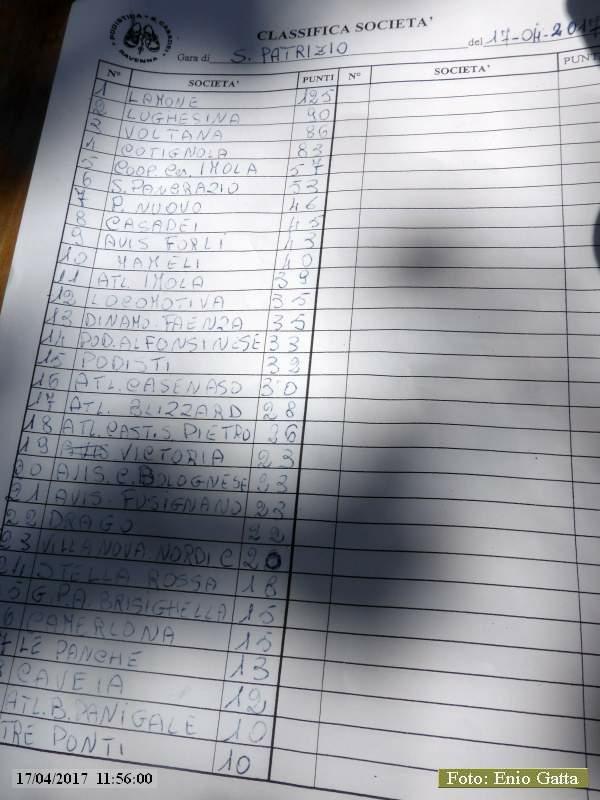 PODISTICA • A. CASADEI
RAVENNA
CLASSIFICA SOCIETA'
Gara di S. PATRIZIO del 17-04-2017
N° SOCIETA' PUNTI N° SOCIETA' PUNTI
1 LAMONE 125
2 LUGHESINA 90
3 VOLTANA 86
4 COTIGNOLA 83
5 COOP. Ce. IMOLA 57
6 S. PANCRAZIO 53
7 P. NUOVO 46
8 CASADEI 45
9 AVIS FORLÌ 43
10 MAMELI 40
11 ATL. IMOLA 39
12 LOCOMOTIVA 35
13 DINAMO. FAENZA 35
14 POD. ALFONSINESE 33
15 PODISTI 32
16 ATL. CASENASO 30
17 ATL. BLIZZARD 28
18 ATL. CAST. S. PIETRO 26
19 VICTORIA 23
20 AVIS. C. BOLOGNESE 23
21 AVIS. FUSIGNANO 23
22 DRAGO 22
23 VILLANOVA NORDIC 20
24 STELLA ROSSA 18
5 G.P.A. BRISIGHELLA 15
6 CAMERLONA 15
7 LE PANCHE 13
CAVEIA 12
ATL. B. PANIGALE 10
TRE PONTI 10
17/04/2017 11:56:00
Foto: Enio Gatta